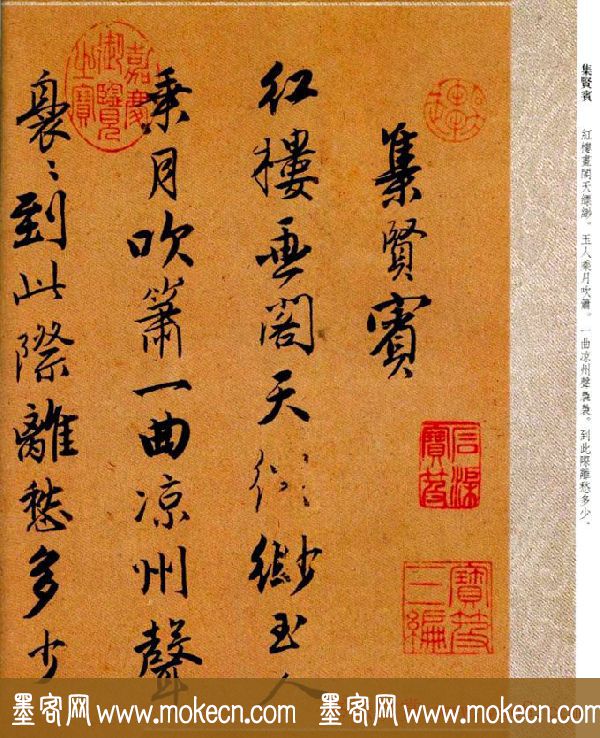 集賢賓
紅樓畫閣天縹緲。玉人乘月吹簫。一曲凉州聲裊裊。到此際離愁多少。
集賢賓
红樓畫閣天縹緲玉人
乘月吹簫一曲凉州聲
裊〻到此際離愁多少
嘉慶御覽之寶
石渠寶笈
寶笈三編
墨客网 www.mokecn.com 墨客网 www.mokecn.com